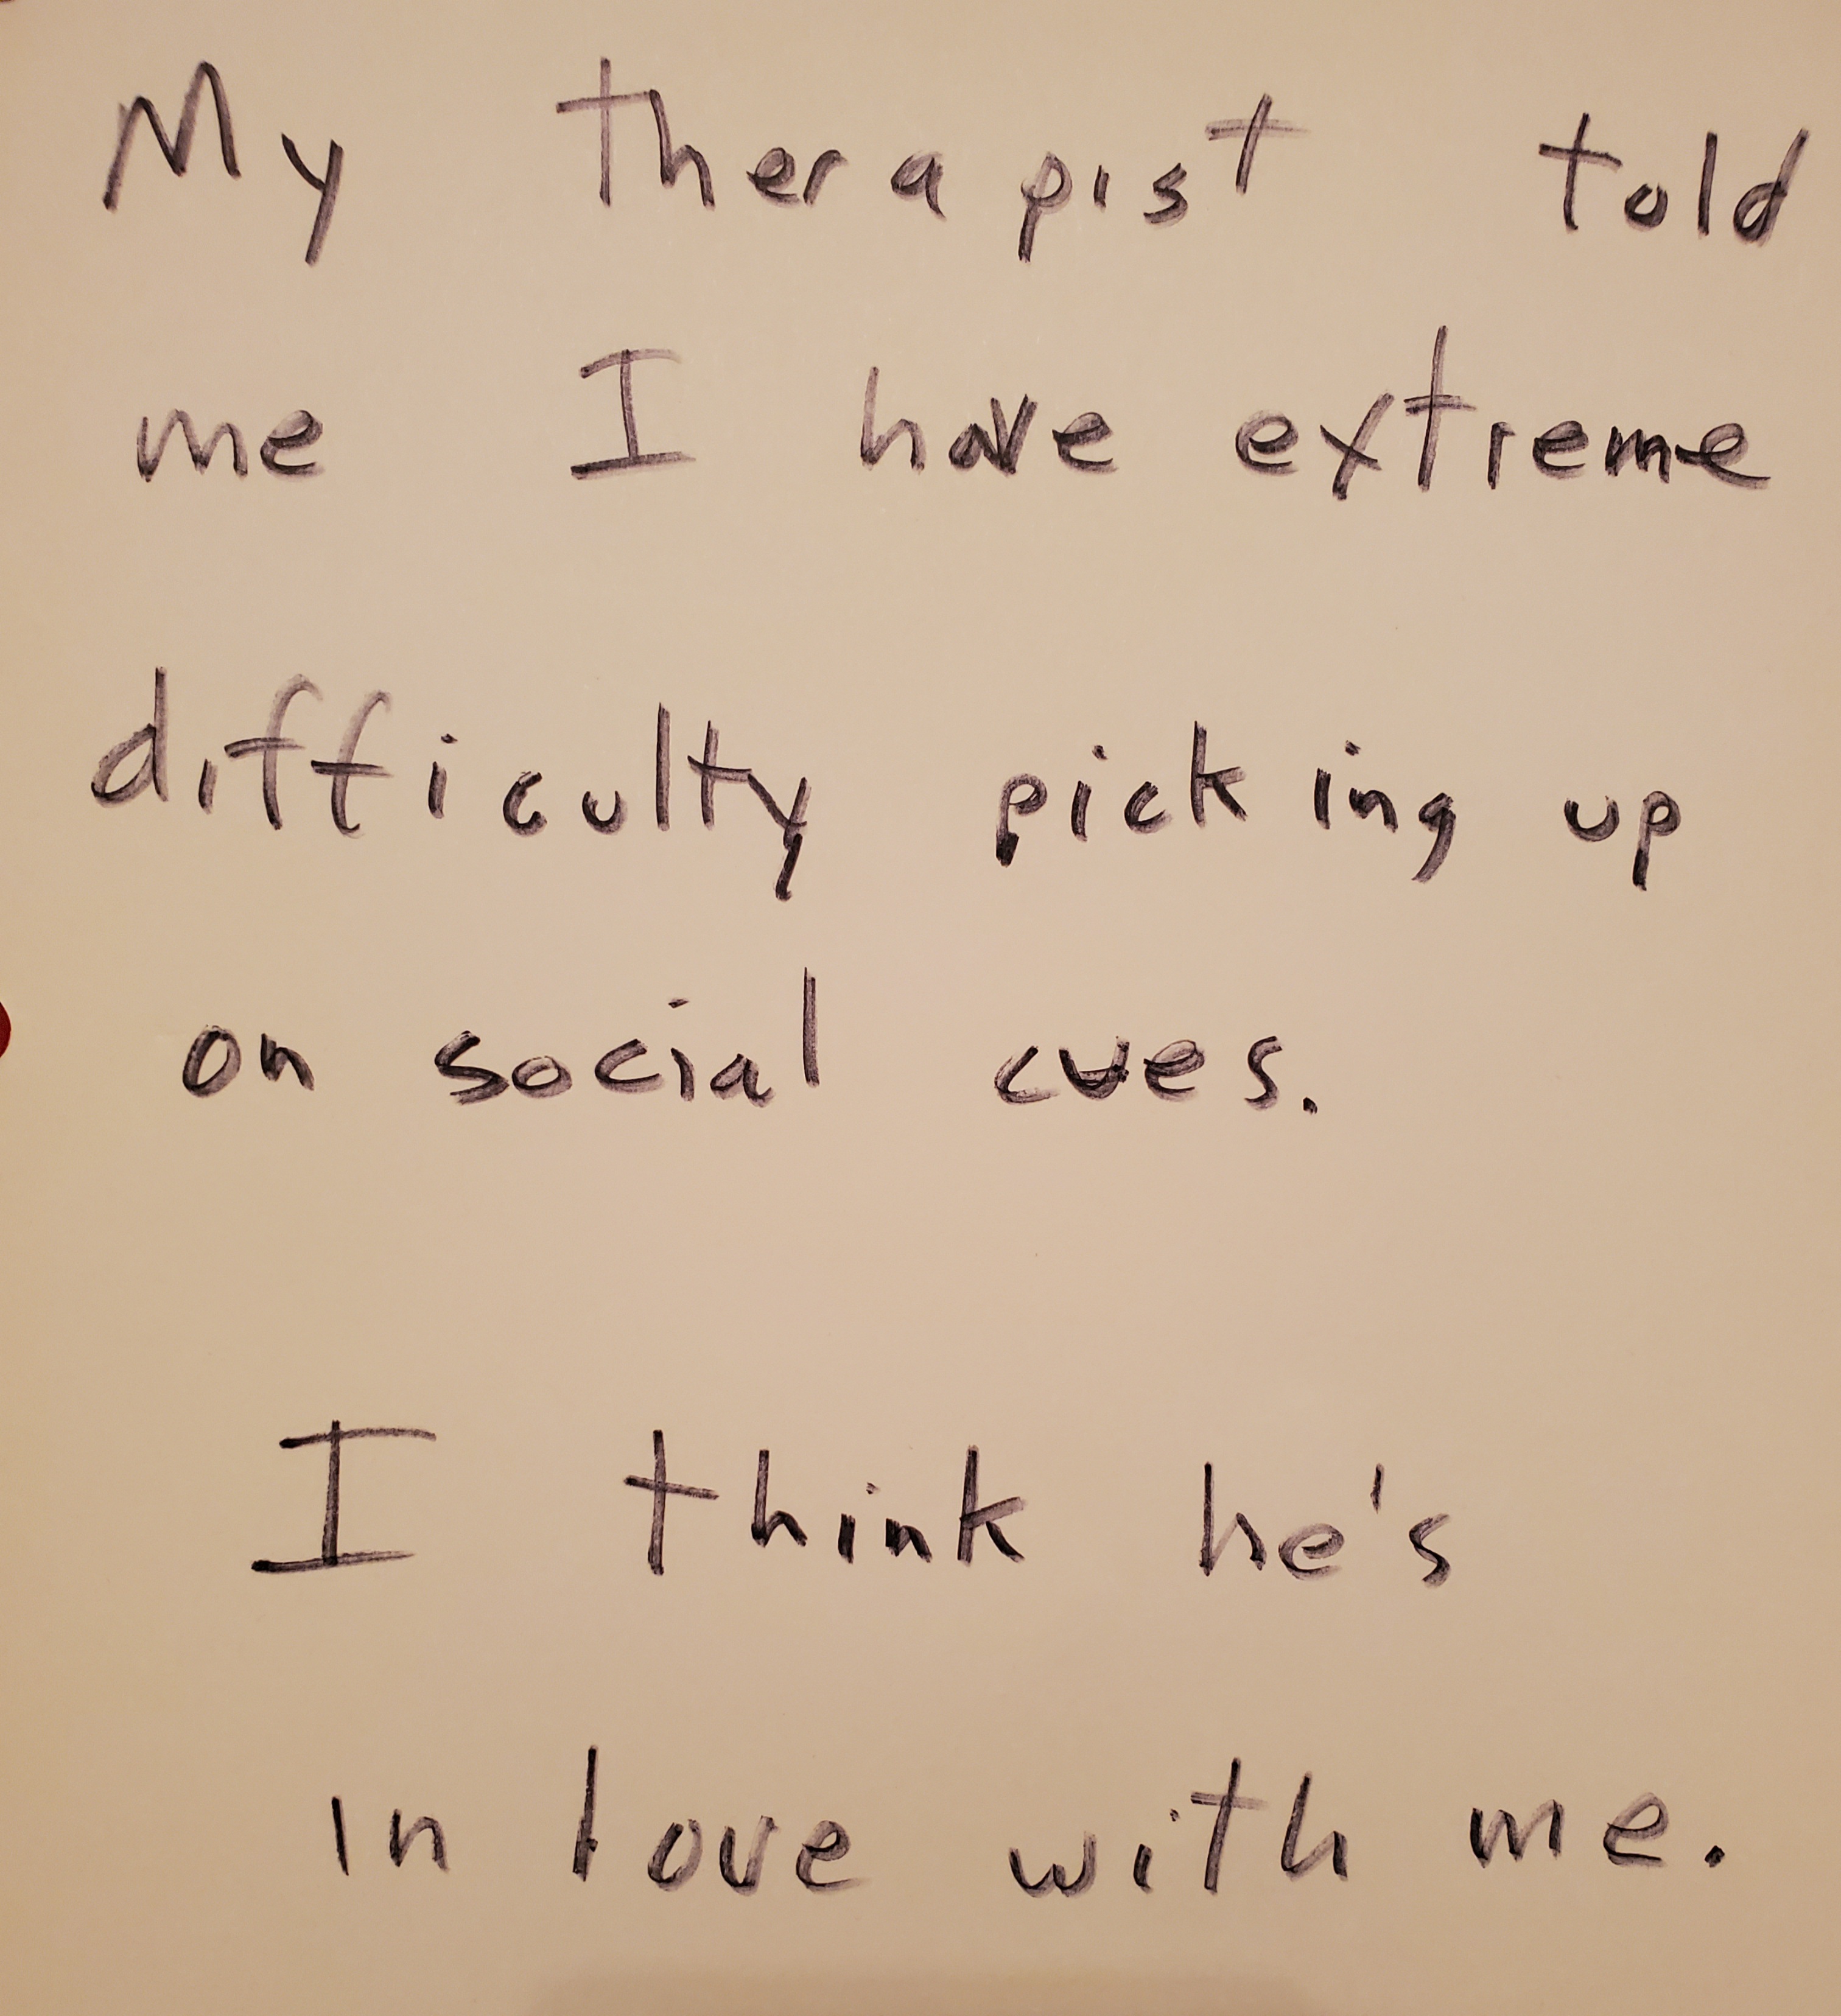 My therapist told
me I have extreme
difficulty picking up
on social cues.
I think he's
in love with me.